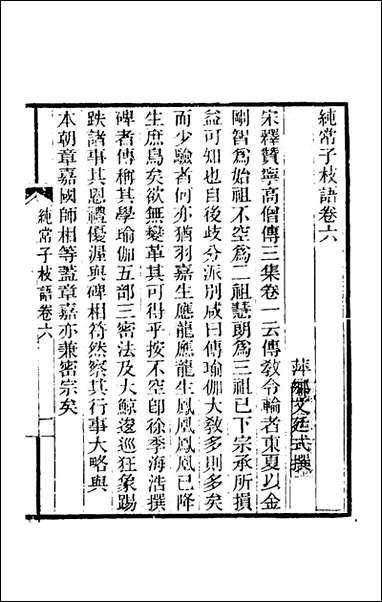 純常子枝語卷六
萍鄉文廷式撰
宋釋贊寧高僧傳三集卷一云傳敎令輪者東夏以金
剛智爲始祖不空爲二祖慧朗爲三祖已下宗承所損
益可知也自後歧分派別咸曰傳瑜伽大敎多則多矣
而少驗者何亦猶羽嘉生應龍應龍生鳳凰鳳凰已降
生庶鳥矣欲無變革其可得乎按不空卽徐季海浩撰
碑者傳稱其學瑜伽五部三密法及大鯨逡巡狂象踢
跌諸事其恩禮優渥與碑相符然察其行事大略與
本朝章嘉國師相等蓋章嘉亦兼密宗矣
純常子枝語卷六